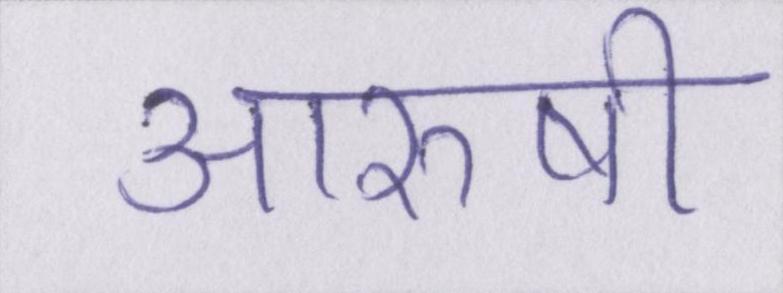 आरुषी